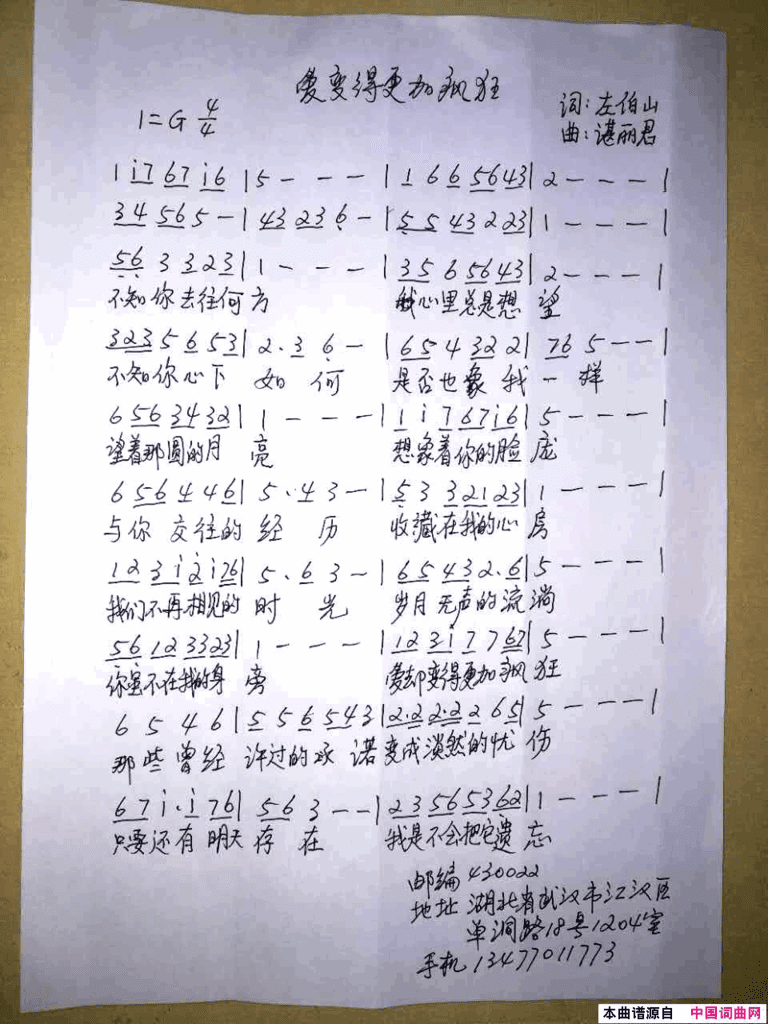 爱变得更加疯狂
1=G 4/4
词:左伯山
曲:谌丽君
1 i7 67 i6 | 5 - - - | 1 6 6 56 43 | 2 - - - |
34 56 5 - | 43 23 6 - | 5 5 43 2 23 | 1 - - - |
56 3 3 23 | 1 - - - | 35 6 56 43 | 2 - - - |
不知你去往何方 我心里总是想望
323 5 6 53 | 2 . 3 6 - | 65 4 32 2 | 76 5 - - |
不知你心下如何 是否也象我一样
6 56 34 32 | 1 - - - | 1 i 7 67 i6 | 5 - - - |
望着那圆的月亮 想象着你的脸庞
6 56 4 46 | 5 . 4 3 - | 5 3 3 21 23 | 1 - - - |
与你交往的经历 收藏在我的心房
12 3i 2 i76 | 5 . 6 3 - | 65 43 2 . 6 | 5 - - - |
我们不再相见的时光 岁月无声的流淌
56 12 33 23 | 1 - - - | 12 3i 7 7 67 | 5 - - - |
你虽不在我的身旁 爱却变得更加疯狂
6 5 4 6 | 5 5 6 5 43 | 2 . 2 2 . 2 2 65 | 5 - - - |
那些曾经许过的承诺变成濙然的忧伤
67 i . i 76 | 56 3 - - | 23 56 53 62 | 1 - - - |
只要还有明天存在 我是不会把它遗忘
邮编 430022
地址 湖北省武汉市江汉区
单洞路18号1204室
手机 13477011773
本曲谱源自 中国词曲网